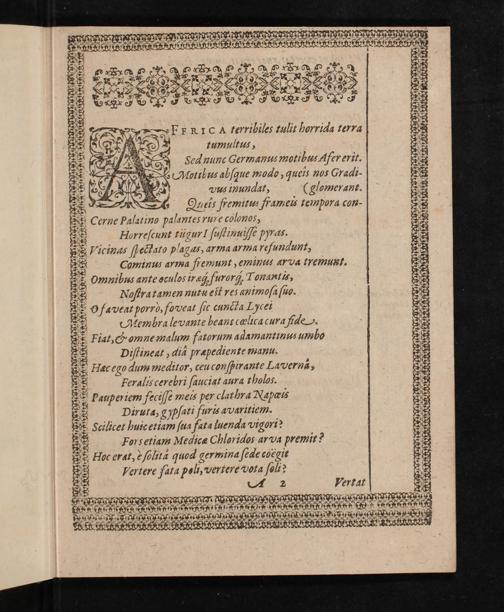 AFFRICA terribiles tulit horrida terra
tumultus,
Sed nunc Germanus motibus Afer erit.
Motibus absque modo, queis nos Gradi-
vus inundat, (glomerant.
Queis fremitus frameis tempora con-
Cerne Palatino palantes rure colonos,
Horrescunt sustinuisse pyras.
Vicinas spectato plagas, arma arma refundunt,
Cominus arma fremunt, eminus arva tremunt.
Omnibus ante oculos iraq́, furorq́, Tonantis,
Nostra tamen nutu est res animosa suo.
O faveat porrò, foveat sic cuncta Lycei
Membra levante beans cœlica cura fide.
Fiat, & omne malum fatorum adamantinus umbo
Distineat, diâ praepediente manu.
Haec ego dum meditor, ceu conspirante Lavernâ,
Feralis cerebri sauciat aura tholos.
Pauperiem fecisse meis per clathra Napaeis
Diruta, gypsati furis avaritiem.
Scilicet huic etiam sua fata luenda vigori?
Fors etiam Medicae Chloridos arva premit?
Hoc erat, è solitâ quod germina sede coëgit
Vertere fata poli, vertere vota soli?
A 2 Vertat